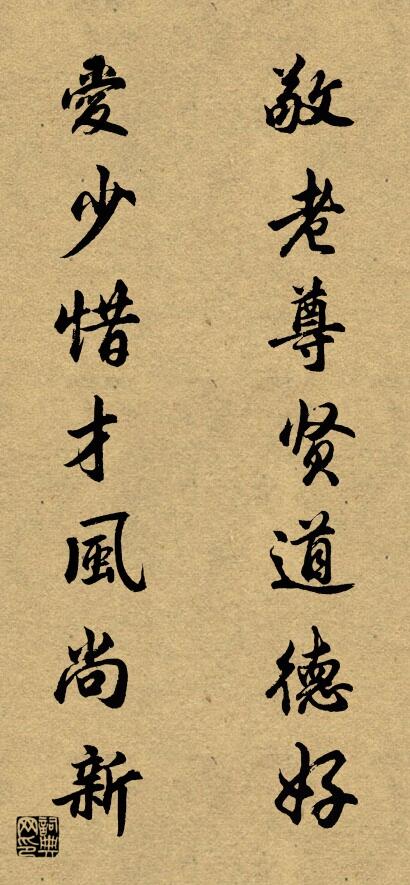 敬老尊贤道德好
愛少惜才風尚新
詞典网印